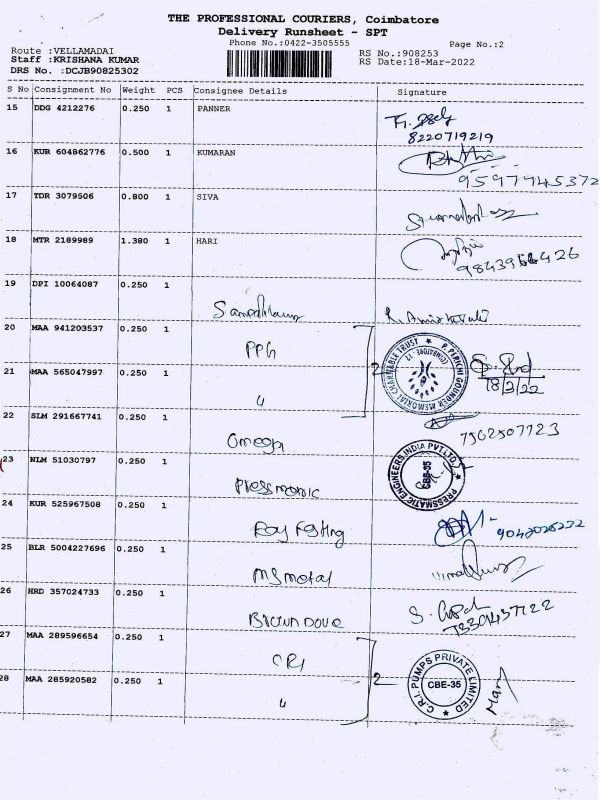 THE PROFESSIONAL COURIERS, Coimbatore
Delivery Runsheet - SPT
Phone No.:0422-3505555
Page No.:2
Route :VELLAMADAI
Staff :KRISHANA KUMAR
DRS No. :DCJB90825302
RS No.:908253
RS Date:18-Mar-2022
S No Consignment No Weight PCS Consignee Details Signature
15 DDG 4212276 0.250 1 PANNER
8220719219
16 KUR 604862776 0.500 1 KUMARAN
9597945372
17 TDR 3079506 0.800 1 SIVA
18 MTR 2189989 1.380 1 HARI
19 DPI 10064087 0.250 1
20 MAA 941203537 0.250 1 PPG
P. PERICHI GOUNDER MEMORIAL CHARITABLE TRUST
COIMBATORE
2
21 MAA 565047997 0.250 1 "
18/3/22
22 SLM 291667741 0.250 1 Omega
7502507723
23 NLM 51030797 0.250 1 Pressmatic
PRESSMATIC ENGINEERS INDIA PVT.LTD.
CBE-35
24 KUR 525967508 0.250 1 Roy Testing
25 BLR 5004227696 0.250 1 MS metal
26 HRD 357024733 0.250 1 Brown Dove
27 MAA 289596654 0.250 1 CRI
2
C.R.I. PUMPS PRIVATE LIMITED
CBE-35
Mani
28 MAA 285920582 0.250 1 "